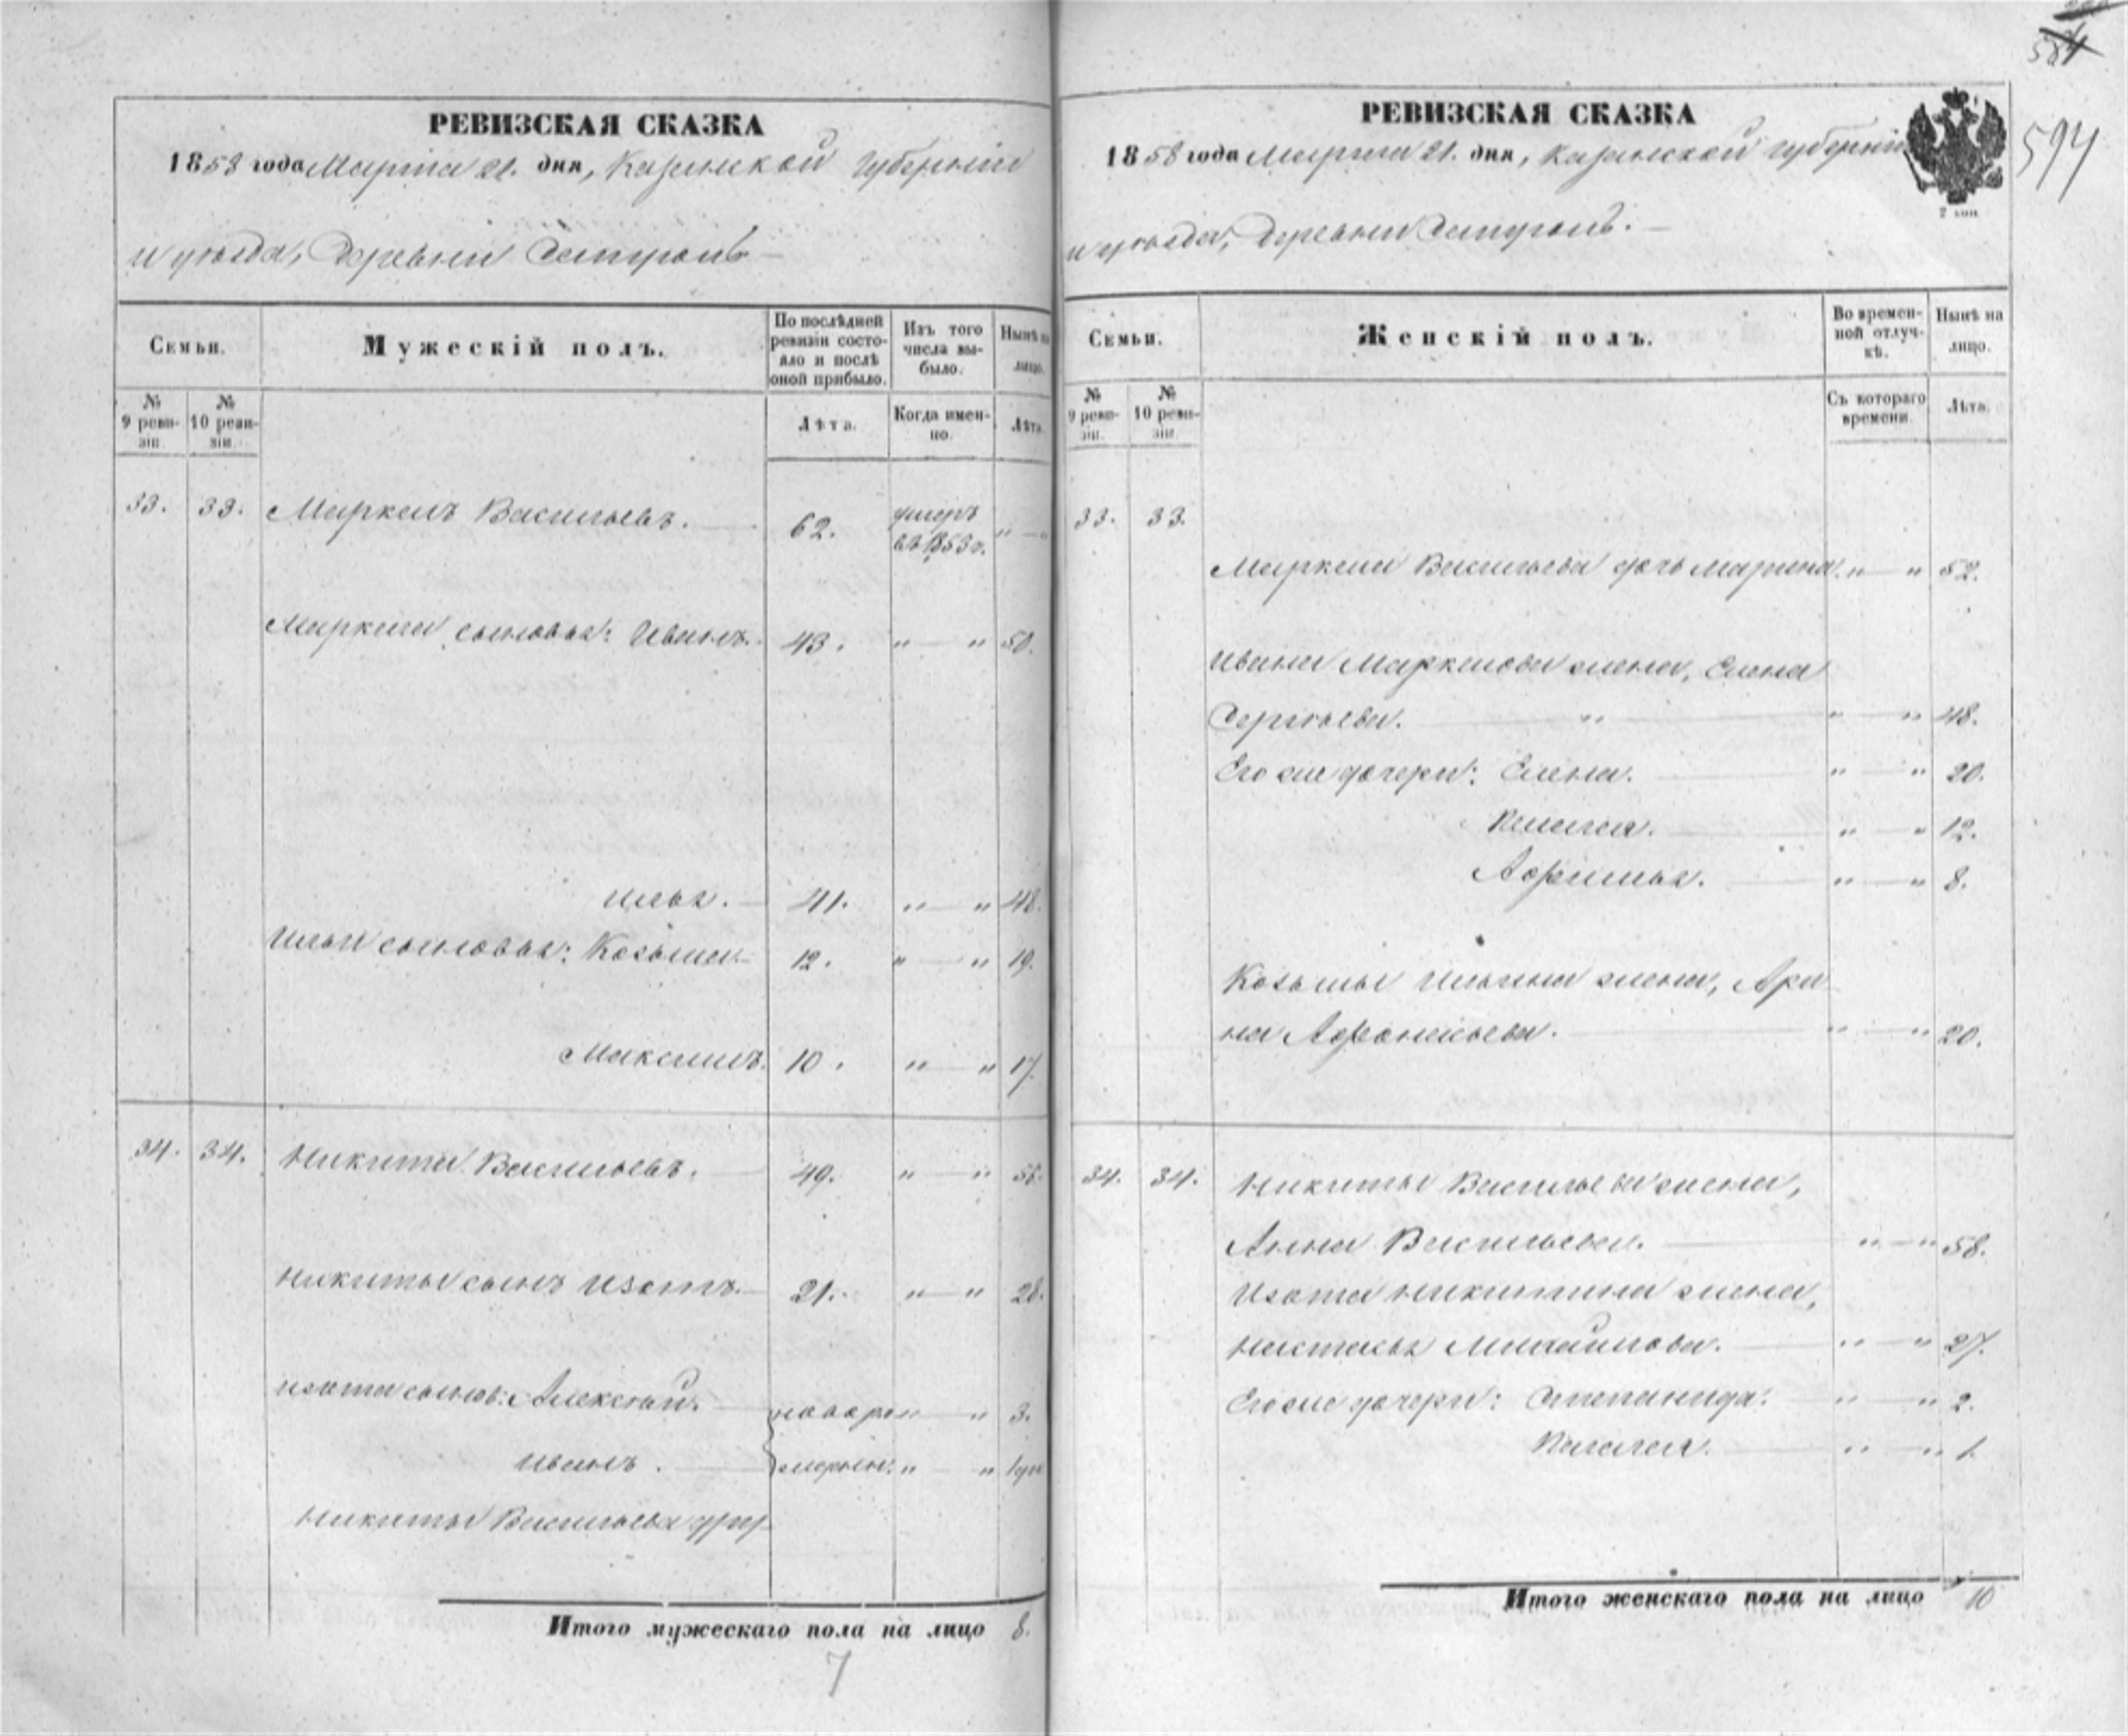 584
594
РЕВИЗСКАЯ СКАЗКА
1858 года Марта 21. дня, Казанской Губерніи
и уѣзда, Деревни
Семьи.
Мужескій полъ.
По послѣдней ревизіи состояло и послѣ оной прибыло.
Изъ того числа выбыло.
Нынѣ на лицо.
№ 9 ревизіи.
№ 10 ревизіи.
Лѣта.
Когда именно.
Лѣта.
33. 33. Маркелъ Васильевъ. 62. умеръ въ 1853 г. „ — „
Маркела сыновья: Иванъ. 43. „ — „ 50.
Илья. 41. „ — „ 48.
Ильи сыновья: Козьма 12. „ — „ 19.
Максимъ. 10. „ — „ 17.
34. 34. Никита Васильевъ. 49. „ — „ 56.
Никиты сынъ Изотъ. 21. „ — „ 28.
Изота сынов: Алексѣй. новоро „ — „ 3.
Иванъ. жденн. „ — „ 1
Никиты Васильева
Итого мужескаго пола на лицо 8.
7
РЕВИЗСКАЯ СКАЗКА
1858 года Марта 21. дня, Казанской Губерніи
2 коп
и уѣзда, Деревни
Семьи.
Женскій полъ.
Во временной отлучкѣ.
Нынѣ на лицо.
№ 9 ревизіи.
№ 10 ревизіи.
Съ котораго времени.
Лѣта.
33. 33.
Маркела Васильева дочь Марина. „ — „ 52.
Ивана Маркелова жена, Елена
Сергѣева. „ „ — „ 48.
Его же дочери: Елена. „ — „ 20.
Пелагея. „ — „ 12.
Афимья. „ — „ 8.
Козьмы Ильина жена, Ари
на Афонасьева. „ — „ 20.
34. 34. Никиты Васильева жена,
Анна Васильева. „ — „ 58.
Изота Никитина жена,
Настасья Михайлова. „ — „ 27.
Его же дочери: Степанида. „ — „ 2.
Пелагея. „ — „ 1.
Итого женскаго пола на лицо 10